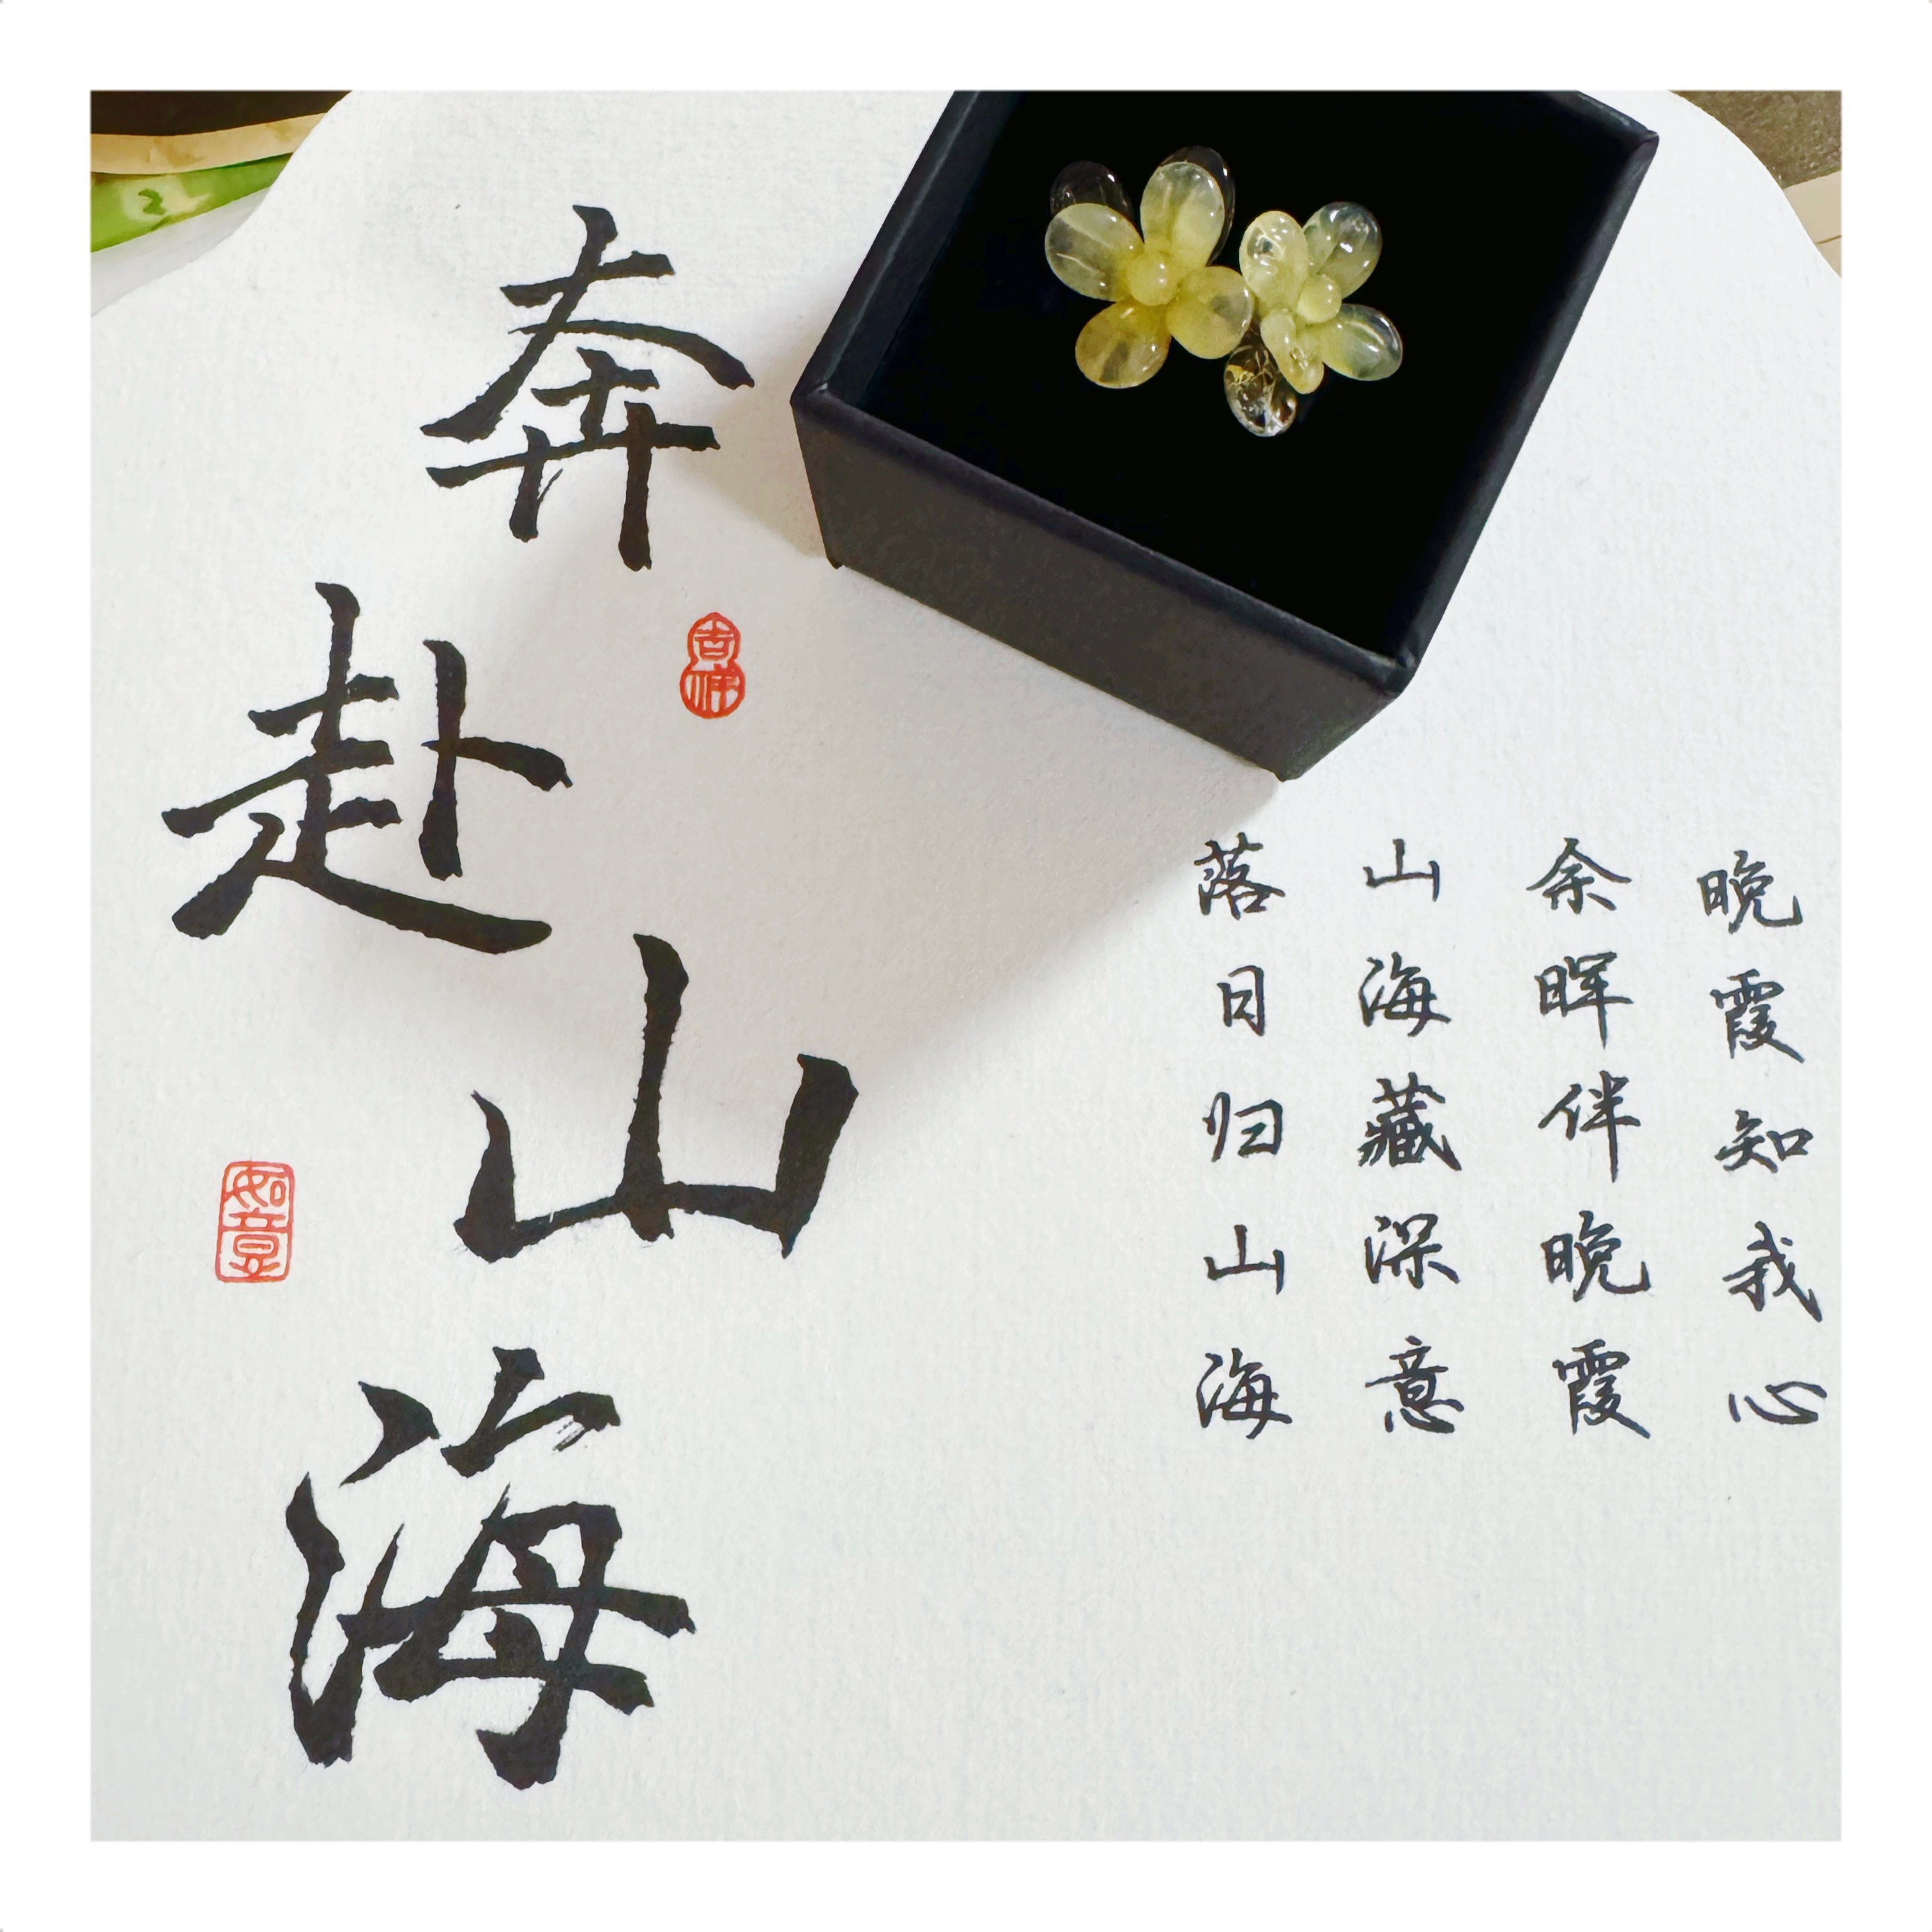 奔赴山海
吉佛
如意
晚霞知我心
余晖伴晚霞
山海藏深意
落日归山海